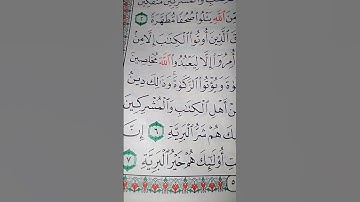 مِّنَ ٱللَّهِ يَتْلُوا۟ صُحُفًا مُّطَهَّرَةً ٢
ٱلَّذِينَ أُوتُوا۟ ٱلْكِتَٰبَ إِلَّا مِنۢ
أُمِرُوٓا۟ إِلَّا لِيَعْبُدُوا۟ ٱللَّهَ مُخْلِصِينَ
وَيُؤْتُوا۟ ٱلزَّكَوٰةَ ۚ وَذَٰلِكَ دِينُ
مِنْ أَهْلِ ٱلْكِتَٰبِ وَٱلْمُشْرِكِينَ
هُمْ شَرُّ ٱلْبَرِيَّةِ ٦ إِنَّ
أُو۟لَٰٓئِكَ هُمْ خَيْرُ ٱلْبَرِيَّةِ ٧